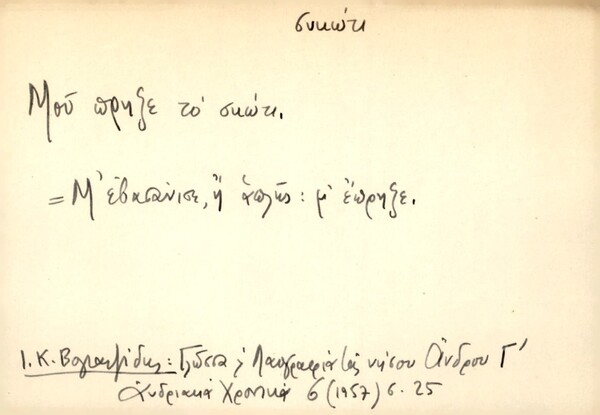 συκώτι
Μοῦ πρηξε τό σκώτι.
= Μ' ἐβασάνισε, ἤ ἁπλῶς: μ' ἔπρηξε.
Ι. Κ. Βογιατζίδης: Γλῶσσα κ Λαογραφία τῆς νήσου Ἄνδρου Γ'
Ἀνδριακά Χρονικά 6 (1957) σ. 25